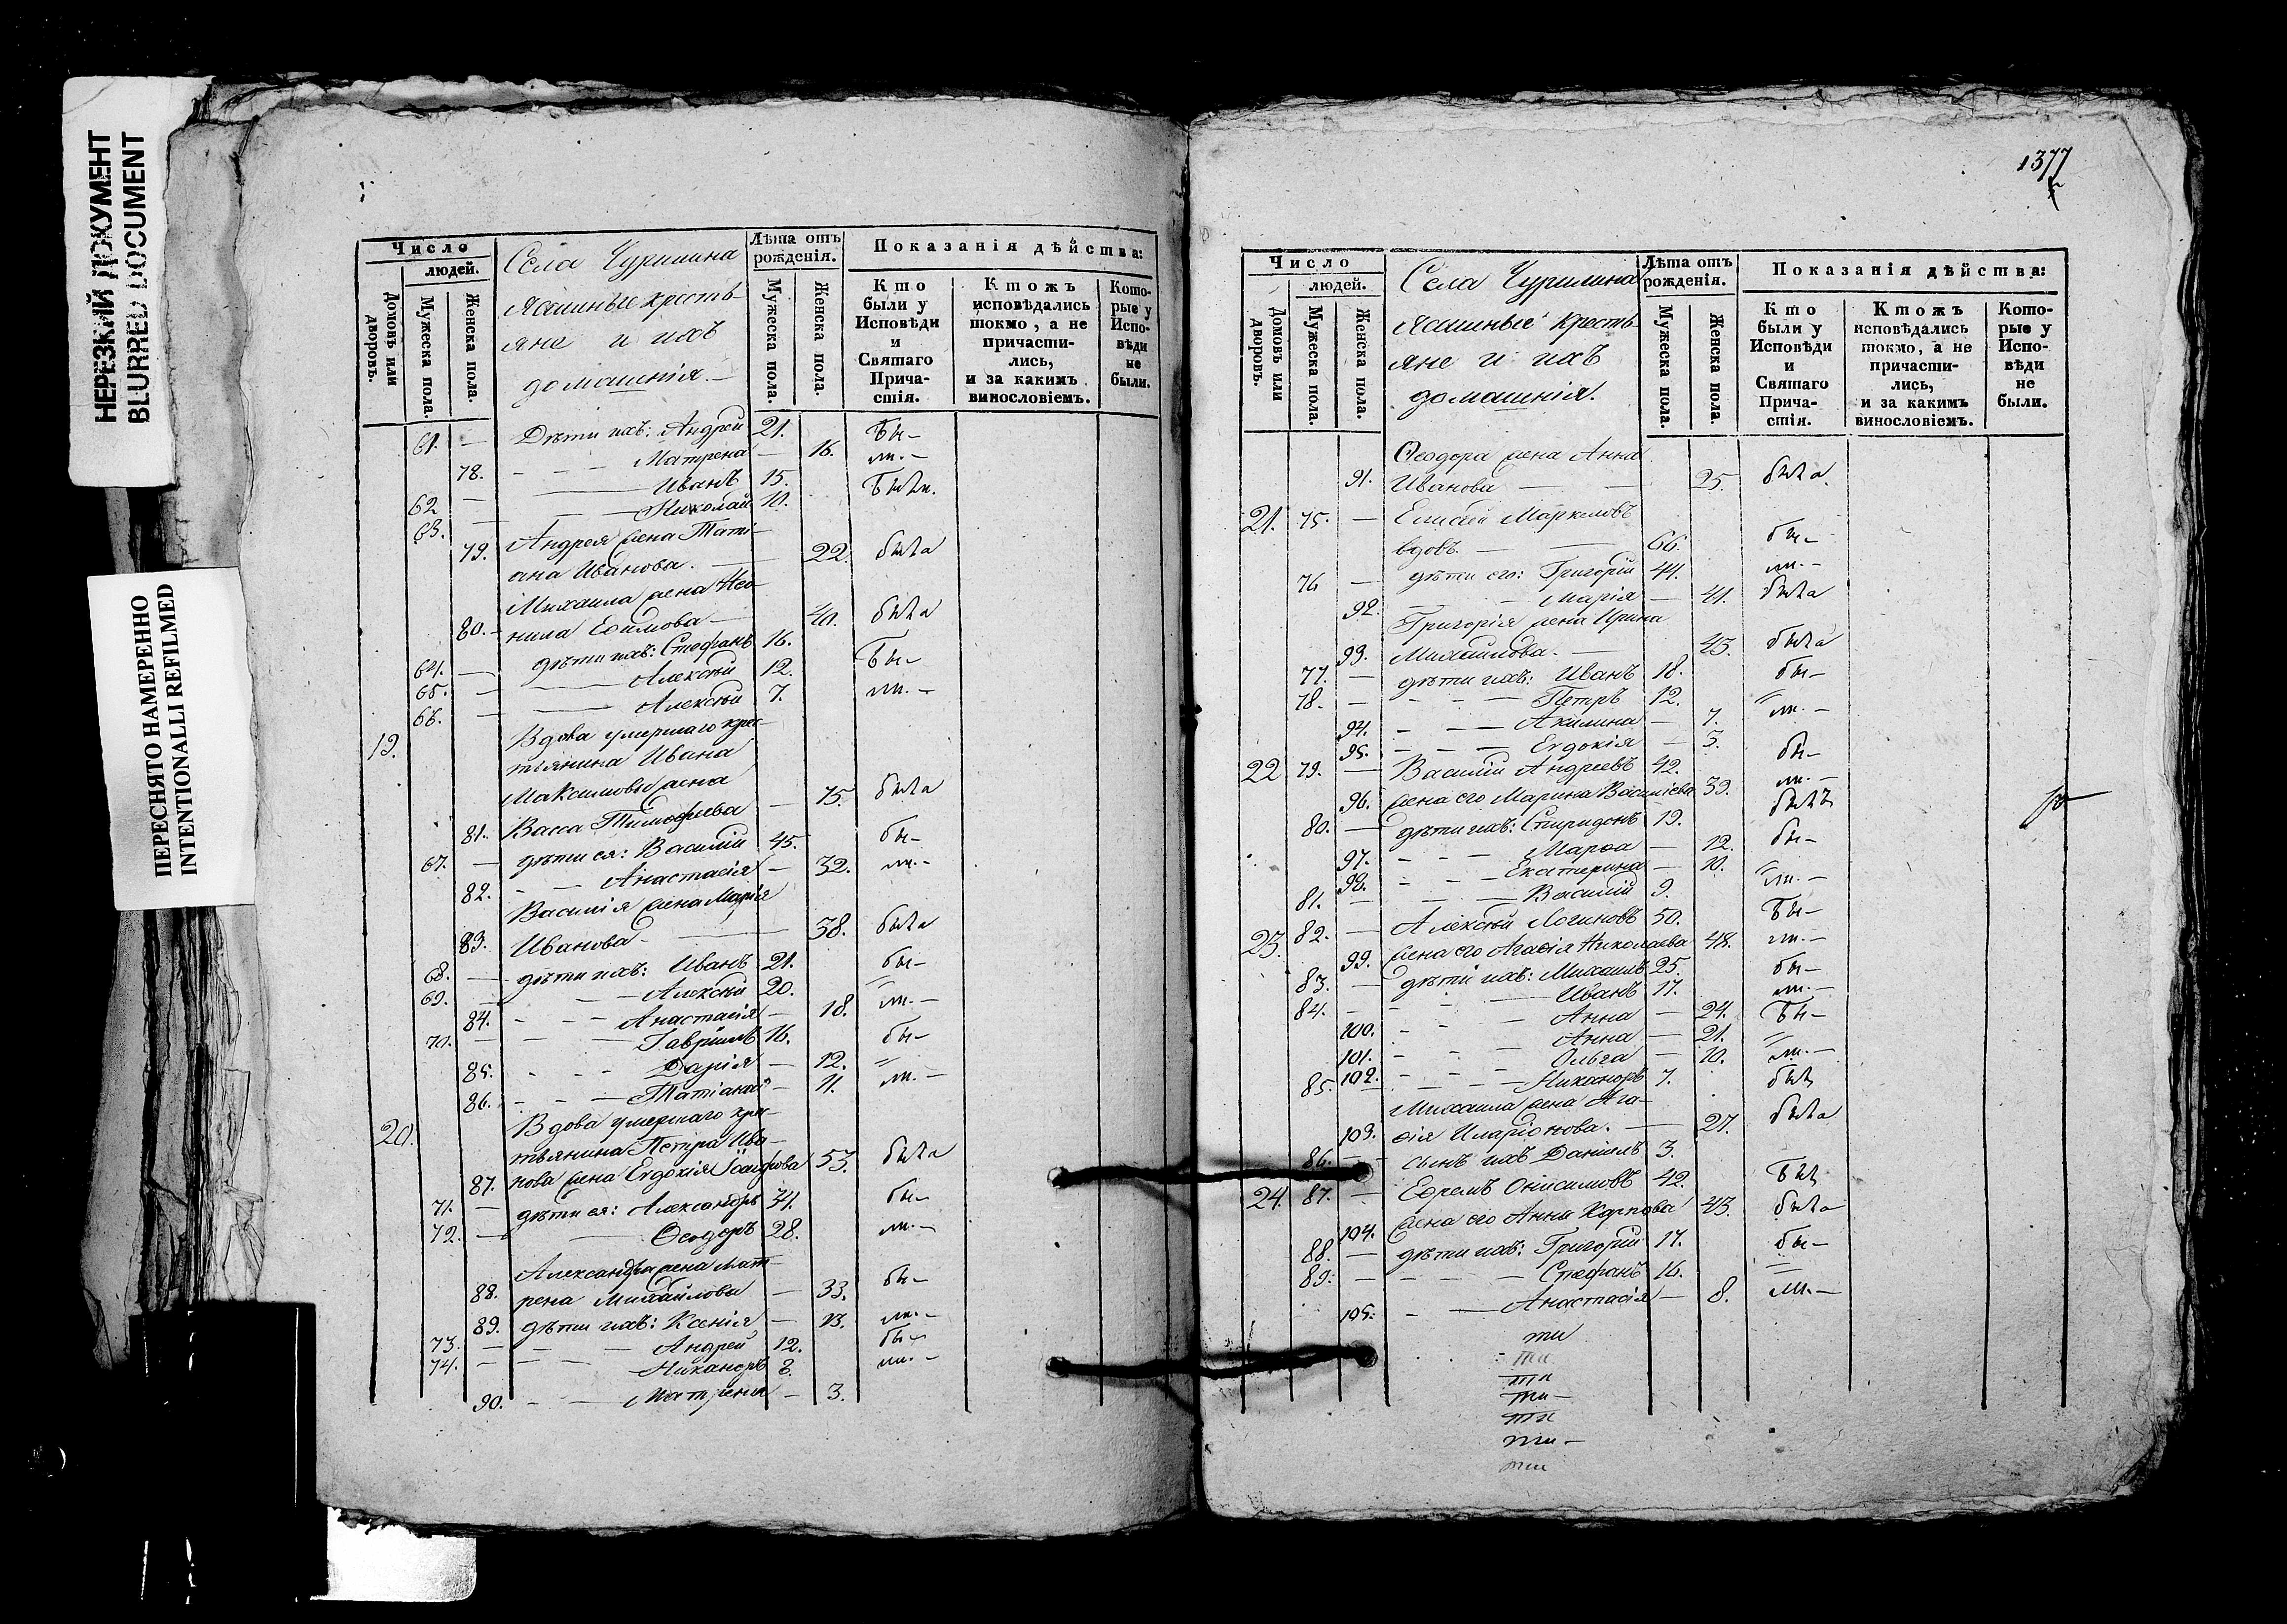 НЕРЕЗКИЙ ДОКУМЕНТ
BLURRED DOCUMENT
ПЕРЕСНЯТО НАМЕРЕННО
INTENTIONALLI REFILMED
Число
людей.
Домовъ или дворовъ.
Мужеска пола.
Женска пола.
Села Чурилина
Ясашные кресть-
яне и ихъ
домашнія.—
Лѣта отъ рожденія.
Мужеска пола.
Женска пола.
Показанія дѣйства:
Кто были у Исповѣди и Святаго Прича- стія.
Ктожъ исповѣдались токмо, а не причасти- лись, и за какимъ винословіемъ.
Кото- рые у Испо- вѣди не были.
61. — Дѣти ихъ: Андрей 21. бы-
78. — — — Матрена — 16. ли.—
62 — — Иванъ 15. были.
63. — — Николай 10.
Андрея жена Тати-
79. ана Иванова. — 22. была
Михаила жена Нео-
80. — нила Ефимова — 40. была
64. — дѣти ихъ: Стефанъ 16. бы-
65. — — Алексѣй 12.
66. — — Алексѣй 7. ли.—
19. Вдова умершаго крес-
тьянина Ивана
Максимова жена
81. Васса Тимофеева — 75. была
67. — дѣти ея: Василій 45. бы-
82. — — Анастасія — 32. ли.—
Василія жена Марія
83. Иванова — 38. была
68. — дѣти ихъ: Иванъ 21. бы-
69. — — Алексѣй 20.
84. — — — Анастасія — 18. ли.—
70. — — — Гавріилъ 16. бы-
85. — — — Дарія — 12.
86. — — — Татіана — 11. ли.—
20. Вдова умершаго кре-
тьянина Петра Ива-
87. нова жена Евдокія Іосифова 53. была
71. — дѣти ея: Александръ 34. бы-
72. — — Ѳеодоръ 28. ли.—
Александра жена Мат-
88. рена Михайлова — 33. бы-
89. дѣти ихъ: Ксенія — 13. ли.—
73. — — — Андрей 12. бы-
74. — — — Никаноръ 8. ли.—
90. — — Матрена — 3.
1377
Число
людей.
Домовъ или дворовъ.
Мужеска пола.
Женска пола.
Села Чурилина
Ясашные кресть-
яне и ихъ
домашнія.
Лѣта отъ рожденія.
Мужеска пола.
Женска пола.
Показанія дѣйства:
Кто были у Исповѣди и Святаго Прича- стія.
Ктожъ исповѣдались токмо, а не причасти- лись, и за какимъ винословіемъ.
Кото- рые у Испо- вѣди не были.
Ѳеодора жена Анна
91. Иванова — — 25. была
21. 75. — Елисей Маркеловъ
вдовъ. — — 66. бы-
76 — дѣти его: Григорій 44. ли.—
92. — — Марія — 41. была
Григорія жена Ирина
93. Михайлова. — 43. была
77. — дѣти ихъ: Иванъ 18. бы-
78. — — — Петръ 12.
94. — — — Акилина — 7. ли.—
95. — — — Евдокія — 3.
22 79. — Василій Андреевъ 42. бы-
96. жена его Марина Василіева 39. ли.—
80. — дѣти ихъ: Спиридонъ 19. былъ
97. — — — Марѳа — 12. бы-
98. — — Екатерина — 10.
81. — — — Василій 9. ли.—
23. 82. — Алексѣй Логиновъ 50. бы-
99. жена его Агаѳія Николаева 48. ли.—
83. — дѣти ихъ: Михаилъ 25. бы-
84. — — — Иванъ 17. ли.—
100. — — Анна — 24. бы-
101. — — Анна — 21.
102. — — Ольга — 10. ли.—
85. — — — Никаноръ 7. былъ
Михаила жена Ага-
103. ѳія Иларіонова. — 27. была
86. — сынъ ихъ Даніилъ 3.
24. 87. — Ефремъ Онисимовъ 42. былъ
104. жена его Анна Карпова 43. была
88. — дѣти ихъ: Григорій 17. бы-
89. — — — Стефанъ 16.
105. — — Анастасія — 8. ли.—
ти
ти
ти
ти—
ти
ти—
ти